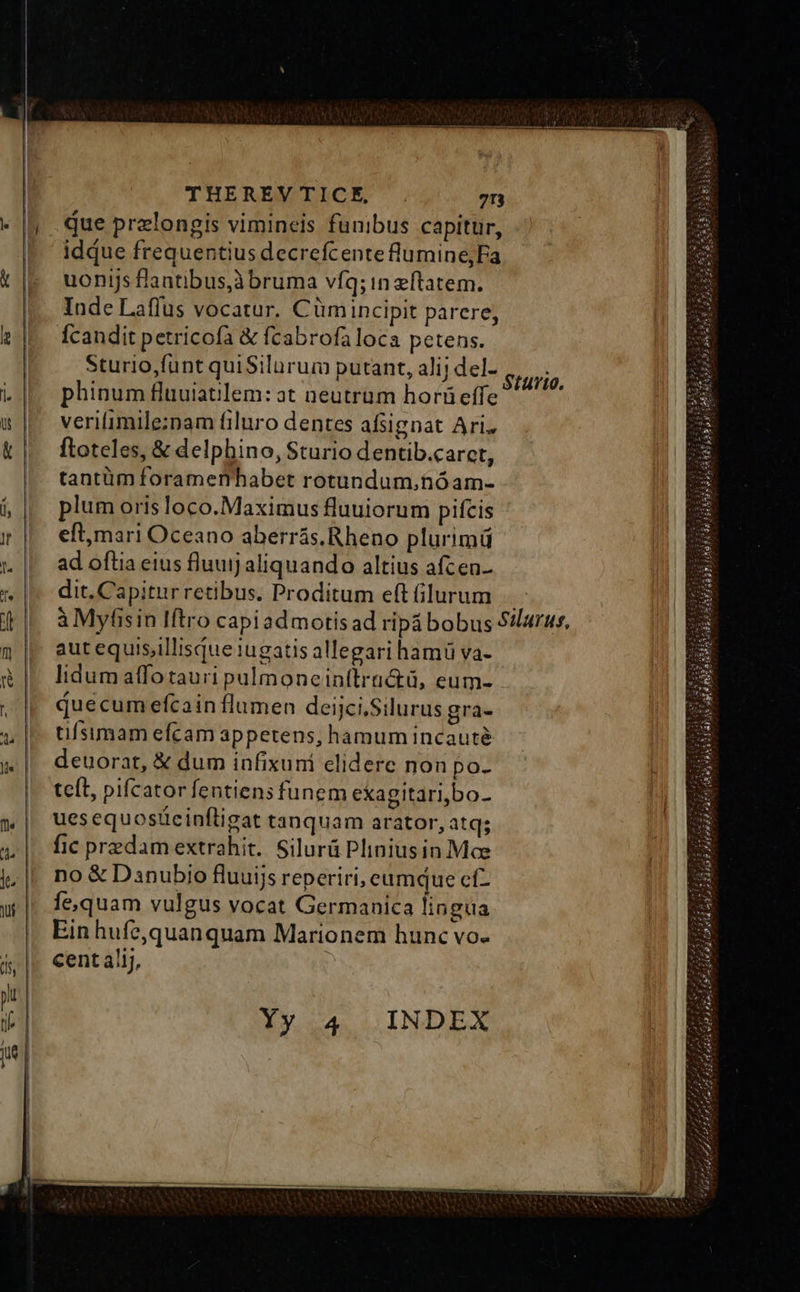 THEREVTICE, 713
que prælongis vimineis funibus capitur,
idque frequentius decreſcente flumine, Fa
uonijs flantibus, à bruma vſq; in æſtatem.
Inde Laſſus vocatur. Cùm incipit parere,
ſcandit petricoſa & ſcabroſa loca petens.
Sturio, ſunt qui Silurum putant, alij del-
Sturio.
phinum fluuiatilem: at neutrum horū eſſe
veriſimile: nam ſiluro dentes aſsignat Ari-
ſtoteles, & delphino, Sturio dentib. caret,
tantùm foramen habet rotundum, nō am-
plum oris loco. Maximus fluuiorum piſcis
eſt, mari Oceano aberrās. Rheno plurimū
ad oſtia eius fluuij aliquando altius aſcen-
dit. Capitur retibus. Proditum eſt ſilurum
à Myſis in Iſtro capi admotis ad ripā bobus
Silurus.
aut equis, illisque iugatis allegari hamū va-
lidum aſſo tauri pulmone inſtructū, eum-
que cum eſca in flumen deijci. Silurus gra-
tiſsimam eſcam appetens, hamum incautè
deuorat, & dum infixum elidere non po-
teſt, piſcator ſentiens funem exagitari, bo-
ues equosúe inſtigat tanquam arator, atq;
ſic prædam extrahit. Silurū Plinius in Mœ
no & Danubio fluuijs reperiri, eumque eſ-
ſe, quam vulgus vocat Germanica lingua
Ein huſe, quanquam Marionem hunc vo-
cent alij.
Yy 4 INDEX